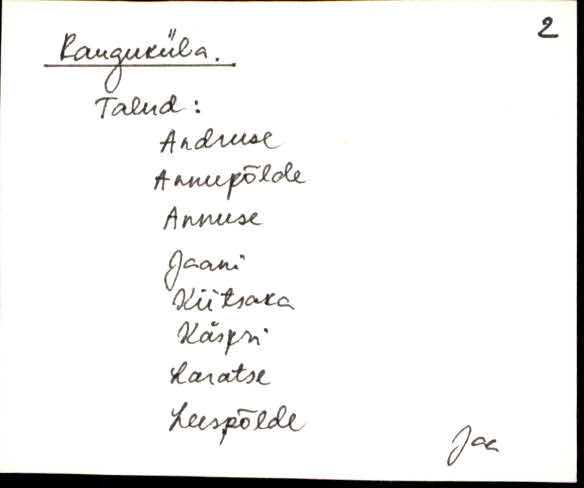 2
Ranguküla.
Talud:
Andruse
Annupõlde
Annuse
Jaani
Kiitsaka
Käspri
Laratse
Leespõlde
Jaa